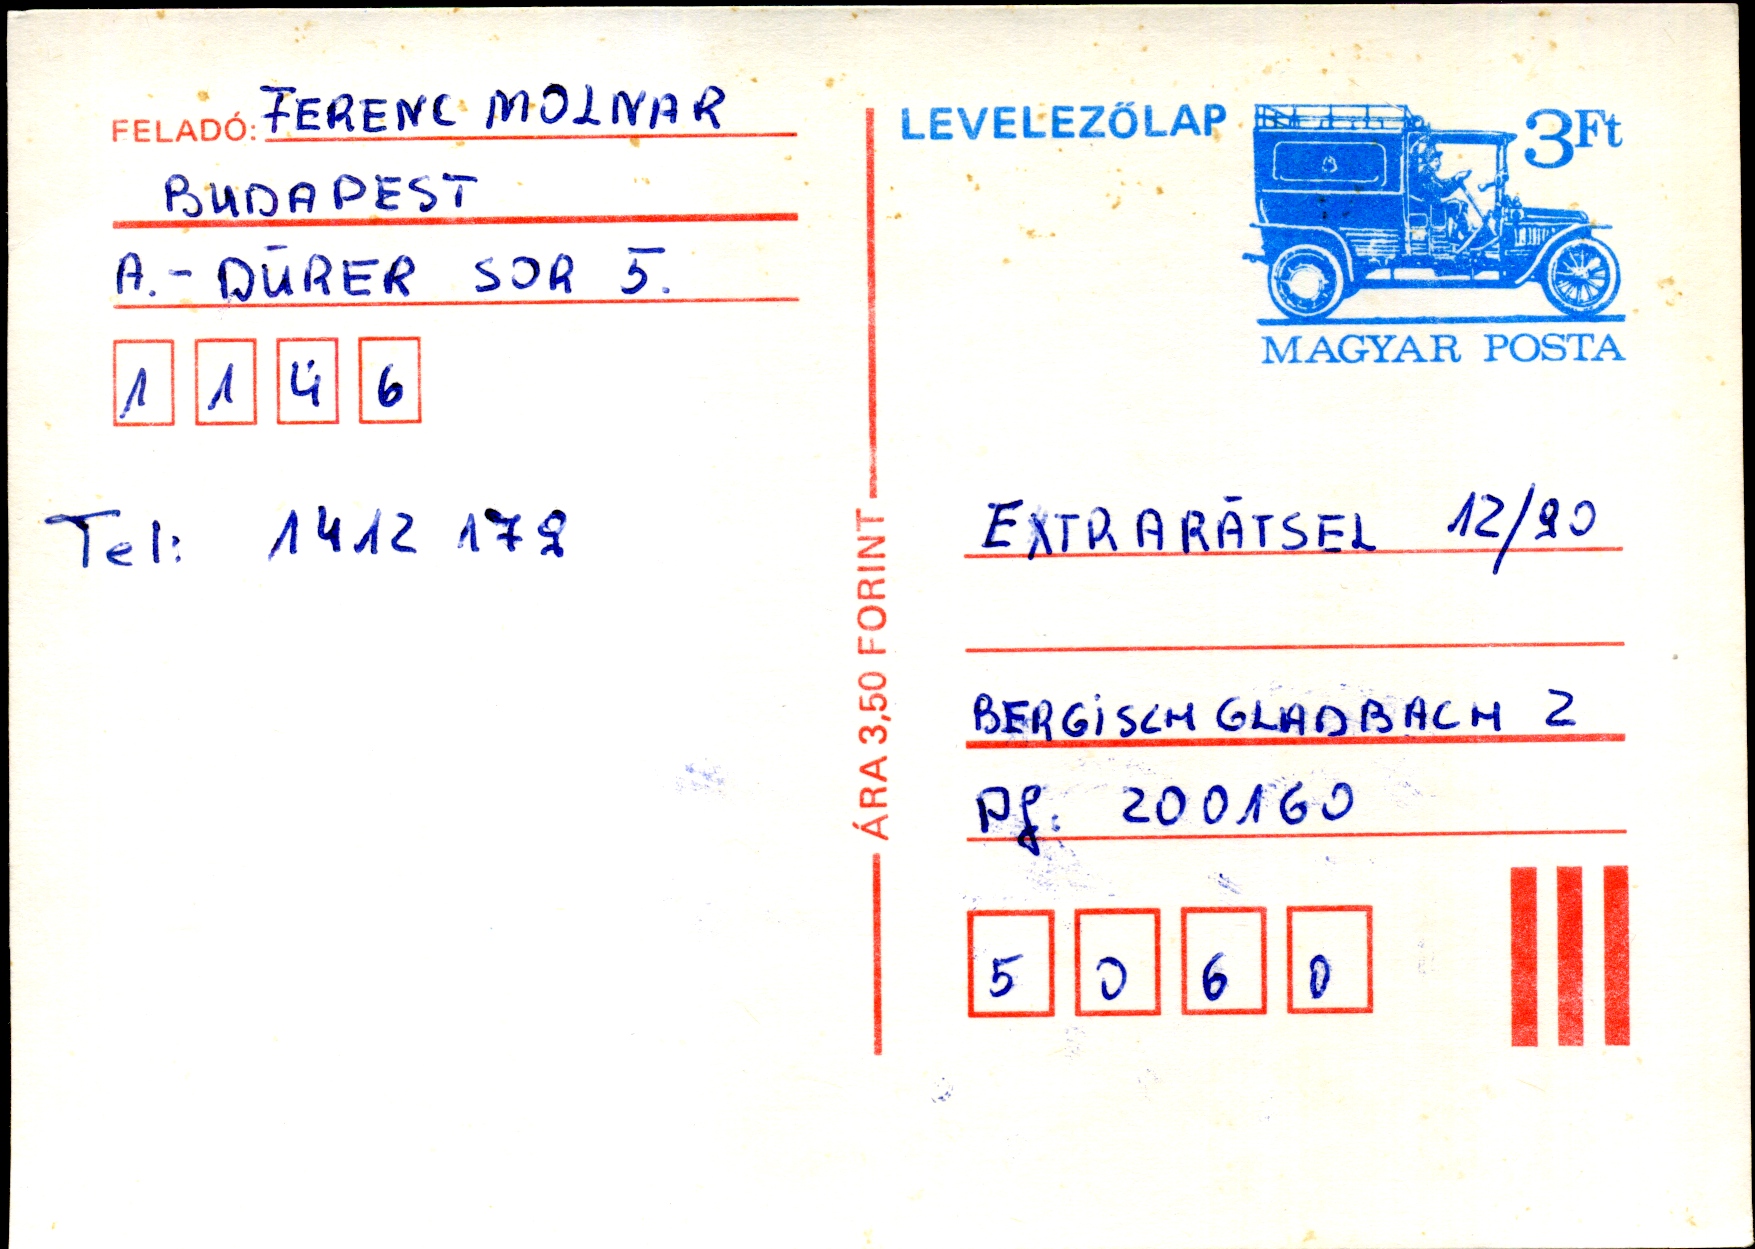 FELADÓ: FERENC MOLNAR
BUDAPEST
A.- DŪRER SOR 5.
1146
Tel: 1412 179
LEVELEZŐLAP
3Ft
MAGYAR POSTA
ÁRA 3,50 FORINT
EXTRARÄTSEL 12/90
BERGISCH GLADBACH 2
Pf: 200160
5060